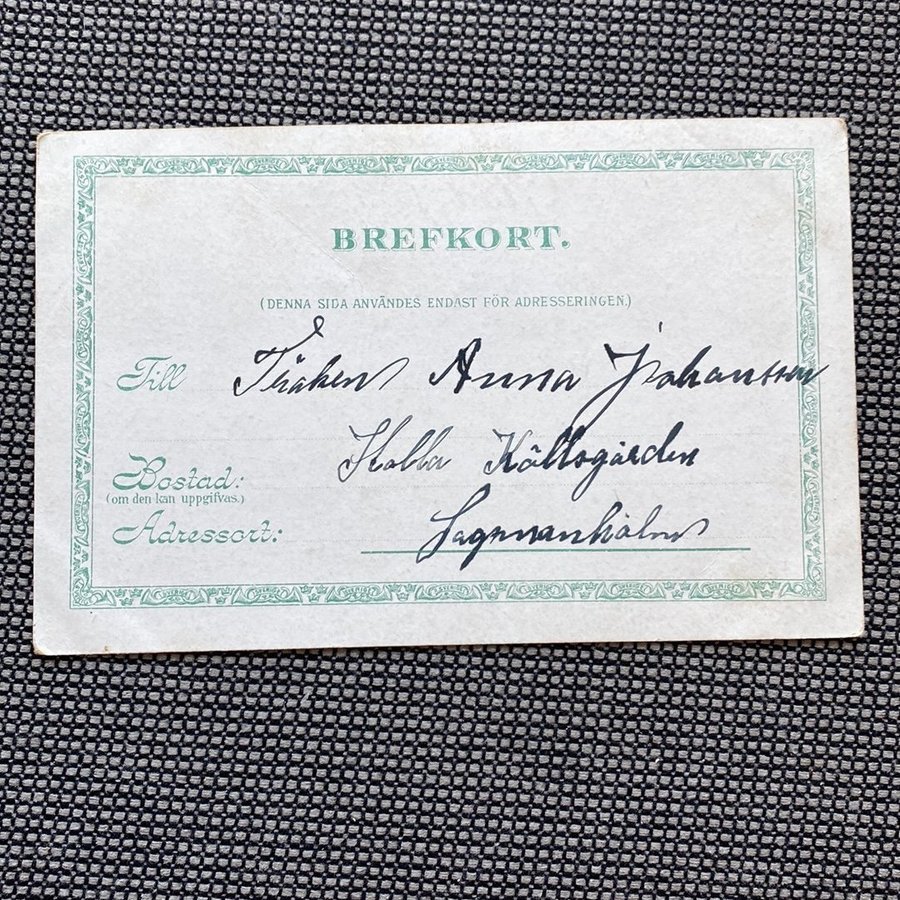 BREFKORT.
(DENNA SIDA ANVÄNDES ENDAST FÖR ADRESSERINGEN.)
Till Fröken Anna Johansson
Stabba Källsgården
Bostad:
(om den kan uppgifvas.)
Adressort: Lagmansholm